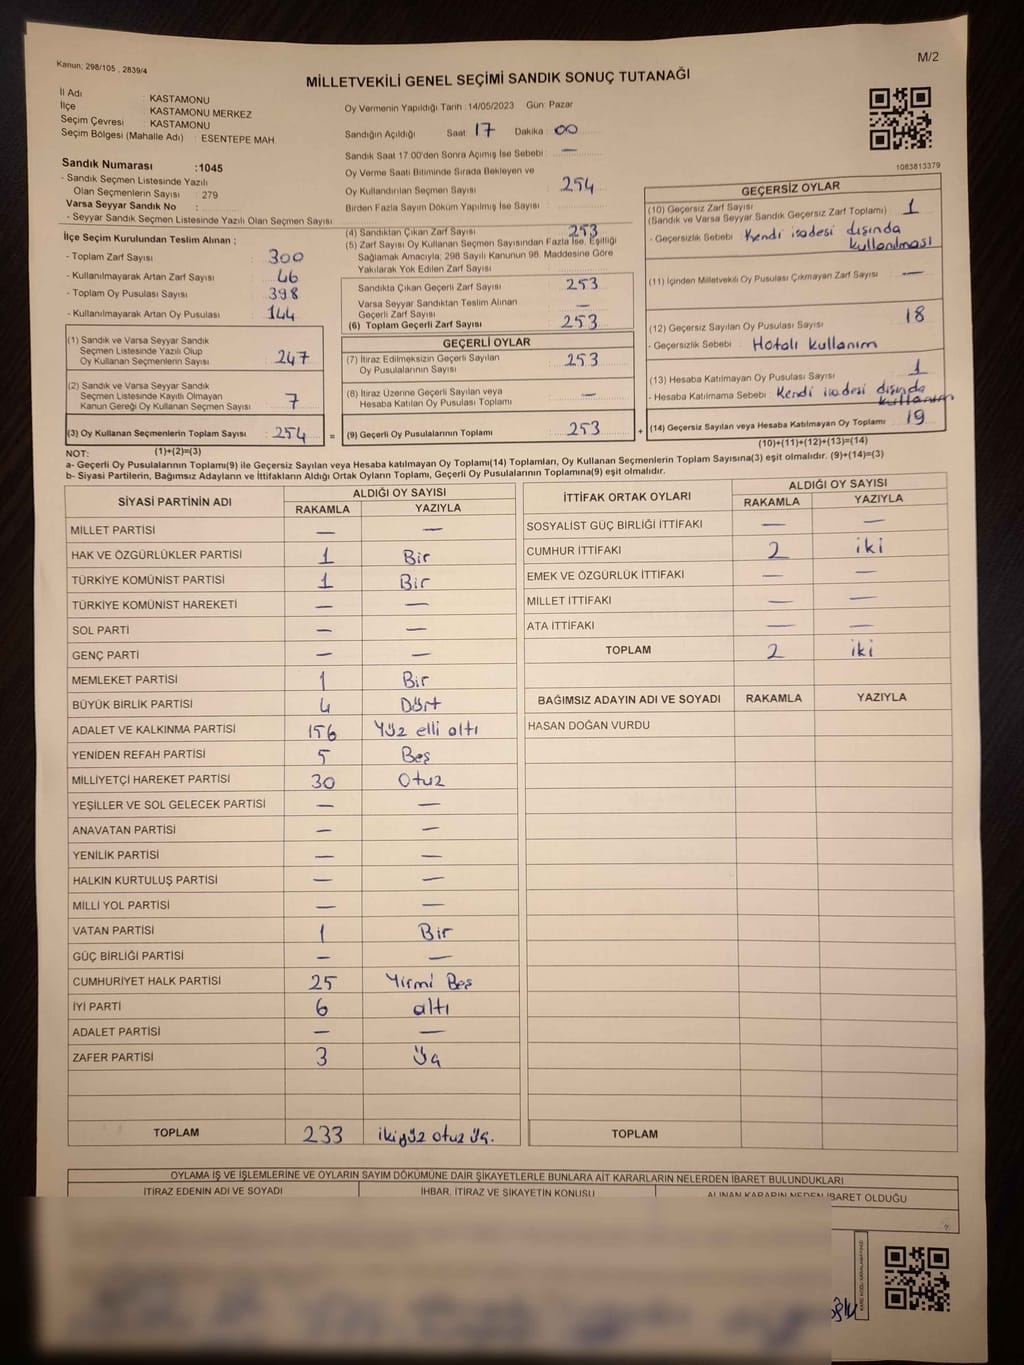 Kanun: 298/105 , 2839/4
M/2
MİLLETVEKİLİ GENEL SEÇİMİ SANDIK SONUÇ TUTANAĞI
İl Adı : KASTAMONU
İlçe : KASTAMONU MERKEZ
Seçim Çevresi : KASTAMONU
Seçim Bölgesi (Mahalle Adı) : ESENTEPE MAH
Sandık Numarası :1045
- Sandık Seçmen Listesinde Yazılı
Olan Seçmenlerin Sayısı : 279
Varsa Seyyar Sandık No :
- Seyyar Sandık Seçmen Listesinde Yazılı Olan Seçmen Sayısı
İlçe Seçim Kurulundan Teslim Alınan ;
- Toplam Zarf Sayısı : 300
- Kullanılmayarak Artan Zarf Sayısı : 46
- Toplam Oy Pusulası Sayısı : 398
- Kullanılmayarak Artan Oy Pusulası : 144
(1) Sandık ve Varsa Seyyar Sandık
Seçmen Listesinde Yazılı Olup
Oy Kullanan Seçmenlerin Sayısı : 247
(2) Sandık ve Varsa Seyyar Sandık
Seçmen Listesinde Kayıtlı Olmayan
Kanun Gereği Oy Kullanan Seçmen Sayısı : 7
(3) Oy Kullanan Seçmenlerin Toplam Sayısı : 254
(1)+(2)=(3)
Oy Vermenin Yapıldığı Tarih :14/05/2023 Gün: Pazar
Sandığın Açıldığı Saat 17 Dakika : 00
Sandık Saat 17:00'den Sonra Açılmış İse Sebebi : —
Oy Verme Saati Bitiminde Sırada Bekleyen ve
Oy Kullandırılan Seçmen Sayısı : 254
Birden Fazla Sayım Döküm Yapılmış İse Sayısı :
(4) Sandıktan Çıkan Zarf Sayısı : 253
(5) Zarf Sayısı Oy Kullanan Seçmen Sayısından Fazla İse, Eşitliği
Sağlamak Amacıyla; 298 Sayılı Kanunun 98. Maddesine Göre
Yakılarak Yok Edilen Zarf Sayısı :
Sandıkta Çıkan Geçerli Zarf Sayısı : 253
Varsa Seyyar Sandıktan Teslim Alınan
Geçerli Zarf Sayısı : —
(6) Toplam Geçerli Zarf Sayısı : 253
GEÇERLİ OYLAR
(7) İtiraz Edilmeksizin Geçerli Sayılan
Oy Pusulalarının Sayısı : 253
(8) İtiraz Üzerine Geçerli Sayılan veya
Hesaba Katılan Oy Pusulası Toplamı : —
= (9) Geçerli Oy Pusulalarının Toplamı : 253 +
1083813379
GEÇERSİZ OYLAR
(10) Geçersiz Zarf Sayısı
(Sandık ve Varsa Seyyar Sandık Geçersiz Zarf Toplamı) : 1
- Geçersizlik Sebebi : Kendi isadesi dışında
kullanılması
(11) İçinden Milletvekili Oy Pusulası Çıkmayan Zarf Sayısı : —
(12) Geçersiz Sayılan Oy Pusulası Sayısı : 18
- Geçersizlik Sebebi : Hotalı kullanım
(13) Hesaba Katılmayan Oy Pusulası Sayısı : 1
- Hesaba Katılmama Sebebi : Kendi isadesi dışında
kullanım
(14) Geçersiz Sayılan veya Hesaba Katılmayan Oy Toplamı : 19
(10)+(11)+(12)+(13)=(14)
NOT:
a- Geçerli Oy Pusulalarının Toplamı(9) ile Geçersiz Sayılan veya Hesaba katılmayan Oy Toplamı(14) Toplamları, Oy Kullanan Seçmenlerin Toplam Sayısına(3) eşit olmalıdır. (9)+(14)=(3)
b- Siyasi Partilerin, Bağımsız Adayların ve İttifakların Aldığı Ortak Oyların Toplamı, Geçerli Oy Pusulalarının Toplamına(9) eşit olmalıdır.
SİYASİ PARTİNİN ADI ALDIĞI OY SAYISI
RAKAMLA YAZIYLA
MİLLET PARTİSİ — —
HAK VE ÖZGÜRLÜKLER PARTİSİ 1 Bir
TÜRKİYE KOMÜNİST PARTİSİ 1 Bir
TÜRKİYE KOMÜNİST HAREKETİ — —
SOL PARTİ — —
GENÇ PARTİ — —
MEMLEKET PARTİSİ 1 Bir
BÜYÜK BİRLİK PARTİSİ 4 Dört
ADALET VE KALKINMA PARTİSİ 156 Yüz elli altı
YENİDEN REFAH PARTİSİ 5 Beş
MİLLİYETÇİ HAREKET PARTİSİ 30 Otuz
YEŞİLLER VE SOL GELECEK PARTİSİ — —
ANAVATAN PARTİSİ — —
YENİLİK PARTİSİ — —
HALKIN KURTULUŞ PARTİSİ — —
MİLLİ YOL PARTİSİ — —
VATAN PARTİSİ 1 Bir
GÜÇ BİRLİĞİ PARTİSİ — —
CUMHURİYET HALK PARTİSİ 25 Yirmi Beş
İYİ PARTİ 6 altı
ADALET PARTİSİ — —
ZAFER PARTİSİ 3 Üç
TOPLAM 233 ikiyüz otuz üç.
İTTİFAK ORTAK OYLARI ALDIĞI OY SAYISI
RAKAMLA YAZIYLA
SOSYALİST GÜÇ BİRLİĞİ İTTİFAKI — —
CUMHUR İTTİFAKI 2 iki
EMEK VE ÖZGÜRLÜK İTTİFAKI — —
MİLLET İTTİFAKI — —
ATA İTTİFAKI — —
TOPLAM 2 iki
BAĞIMSIZ ADAYIN ADI VE SOYADI RAKAMLA YAZIYLA
HASAN DOĞAN VURDU
TOPLAM
OYLAMA İŞ VE İŞLEMLERİNE VE OYLARIN SAYIM DÖKÜMÜNE DAİR ŞİKAYETLERLE BUNLARA AİT KARARLARIN NELERDEN İBARET BULUNDUKLARI
İTİRAZ EDENİN ADI VE SOYADI İHBAR, İTİRAZ VE ŞİKAYETİN KONUSU ALINAN KARARIN NEDEN İBARET OLDUĞU